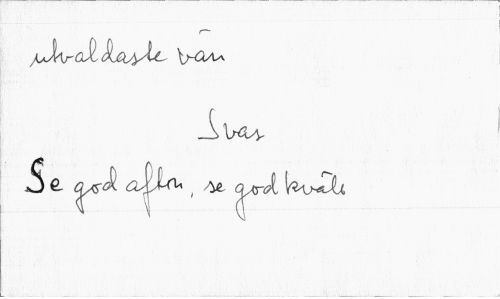 utvaldaste vän
Svas
Se god afton, se god kväll